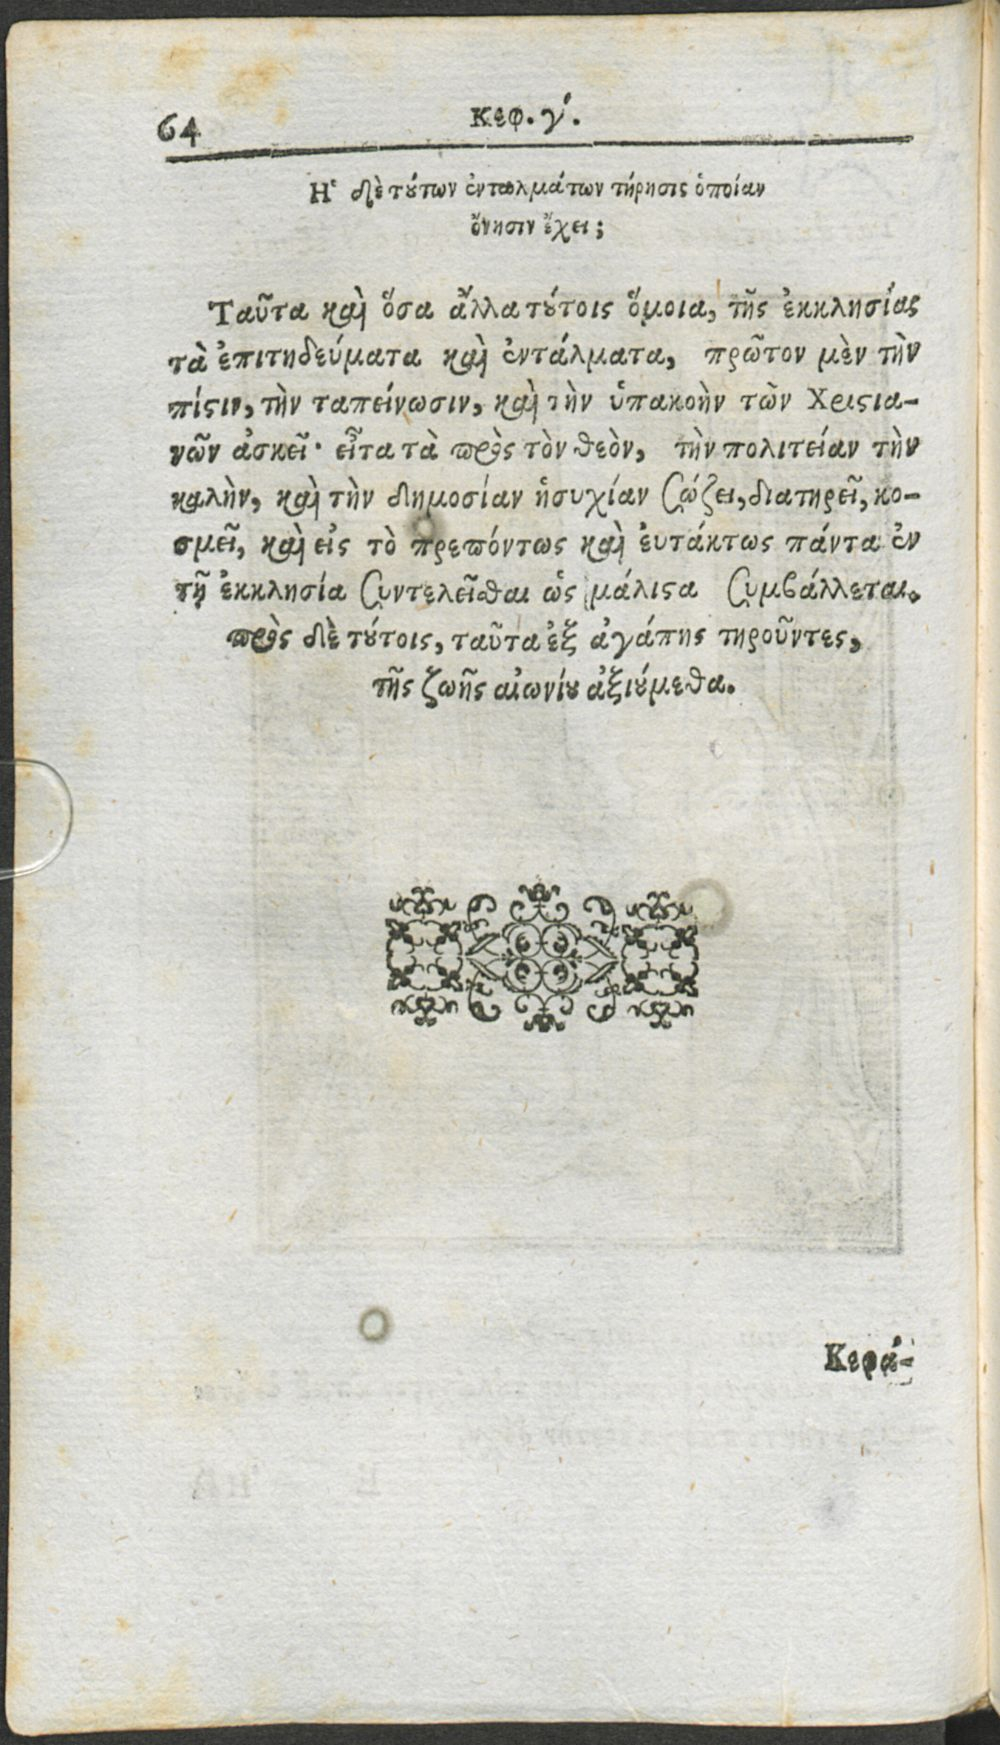 64 Κεφ. γ΄.
Ἡ δὲ τούτων ἐνταλμάτων τήρησις ὁποίαν
ὄνησιν ἔχει;
Ταῦτα καὶ ὅσα ἄλλα τούτοις ὅμοια, τῆς ἐκκλησίας
τὰ ἐπιτηδεύματα καὶ ἐντάλματα, πρῶτον μὲν τὴν
πίϛιν, τὴν ταπείνωσιν, καὶ τὴν ὑπακοὴν τῶν Χριϛια-
νῶν ἀσκεῖ· εἶτα τὰ πρὸς τὸν θεὸν, τὴν πολιτείαν τὴν
καλὴν, καὶ τὴν δημοσίαν ἡσυχίαν σώζει, διατηρεῖ, κο-
σμεῖ, καὶ εἰς τὸ πρεπόντως καὶ ἐυτάκτως πάντα ἐν
τῇ ἐκκλησία συντελεῖσθαι ὡς μάλιϛα συμβάλλεται.
πρὸς δὲ τούτοις, ταῦτα ἐξ ἀγάπης τηροῦντες,
τῆς ζωῆς αἰωνίου ἀξιούμεθα.
Κεφά-